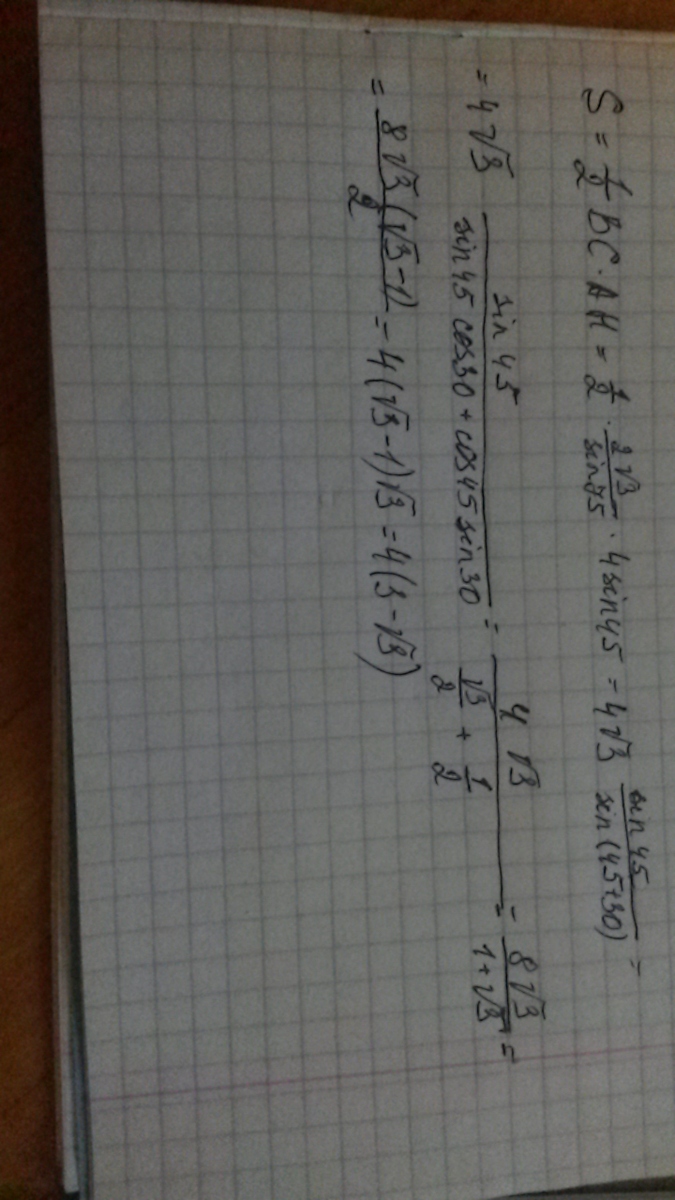 S = 1/2 BC · AH = 1/2 · 2√3/sin75 · 4sin45 = 4√3 sin45/sin(45+30) =
= 4√3 sin45/(sin45 cos30 + cos45 sin30) = 4√3/(√3/2 + 1/2) = 8√3/(1+√3) =
= 8√3(√3-1)/2 = 4(√3-1)√3 = 4(3-√3)